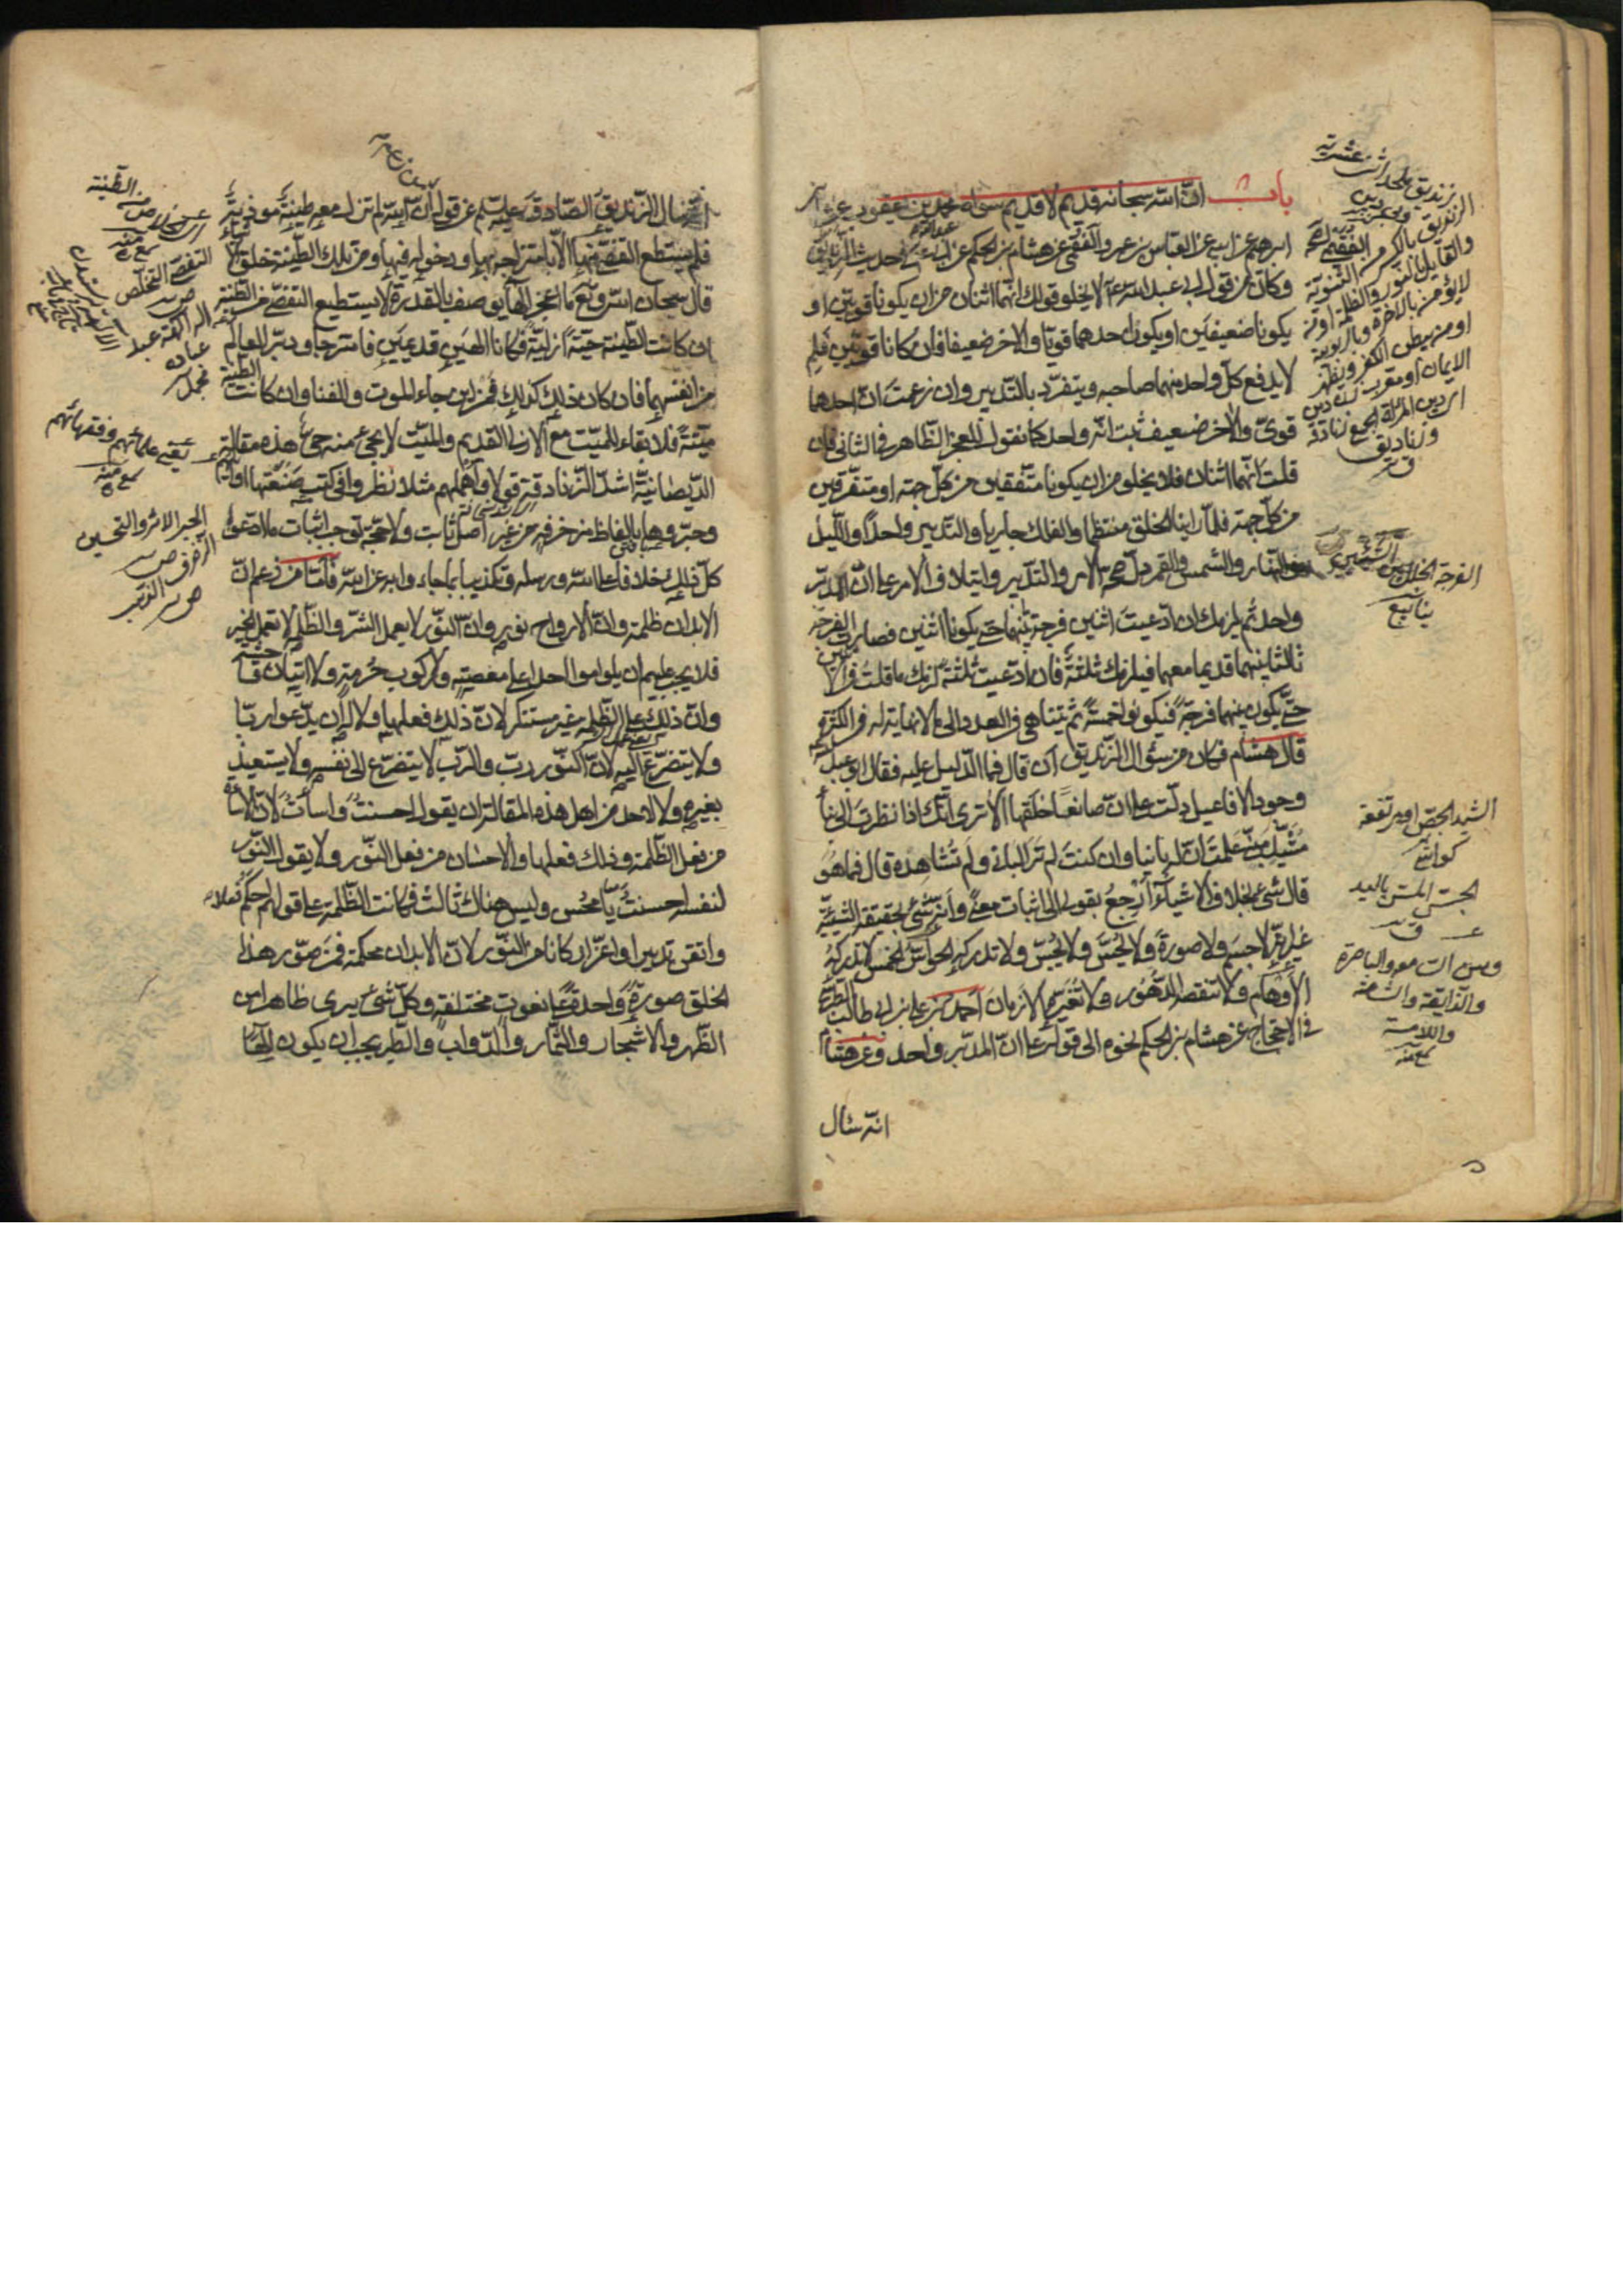 باب ان الله سبحانه قديم لا قديم سواه محمد بن يعقوب عن علي بن
ابرهيم عن ابيه عن العباس بن عمرو الفقيمي عن هشام بن الحكم في حديث الزنديق
وكان من قول ابي عبد الله ع لا يخلو قولك انهما اثنان من ان يكونا قويين او
يكونا ضعيفين او يكون احدهما قويا والاخر ضعيفا فان كانا قويين فلم
لا يدفع كل واحد منهما صاحبه ويتفرد بالتدبير وان زعمت ان احدهما
قوي والاخر ضعيف ثبت انه واحد كما نقول للعجز الظاهر في الثاني فان
قلت انهما اثنان فلا يخلو من ان يكونا متفقين من كل جهة او متفرقين
من كل جهة فلما راينا الخلق منتظما والفلك جاريا والتدبير واحدا والليل
والنهار والشمس والقمر دل صحة الامر والتدبير وايتلاف الامر على ان المدبر
واحد ثم يلزمك ان ادعيت اثنين فرجة بينهما حتى يكونا اثنين فصارت الفرجة
ثالثا بينهما قديما معهما فيلزمك ثلثة فان ادعيت ثلثة لزمك ما قلت في الاثنين
حتى يكون بينهما فرجة فيكونوا خمسة ثم يتناهى في العدد الى ما لا نهاية له في الكثرة
قال هشام فكان من سؤال الزنديق ان قال فما الدليل عليه فقال ابو عبد الله
وجود الافاعيل دلت على ان صانعا خلقها الا ترى انك اذا نظرت الى بناء
مشيد مبني علمت ان له بانيا وان كنت لم تر الباني ولم تشاهده قال فما هو
قال شئ بخلاف الاشياء ارجع بقولي الى اثبات معنى وانه شئ بحقيقة الشيئية
غير انه لا جسم ولا صورة ولا يحس ولا يجس ولا تدركه الحواس الخمس لا تدركه
الاوهام ولا تنقصه الدهور ولا تغيره الازمان احمد بن علي بن ابي طالب الطبرسي
في الاحتجاج عن هشام بن الحكم نحوه الى قوله على ان المدبر واحد وعن هشام
انه سال
زنديق
والقايل بالنور والظلمة او من
لا يؤمن بالاخرة وبالربوبية
او من يبطن الكفر ويظهر
الايمان او معرب زن دين
اي دين المراة الجمع زنادقة
وزناديق
ق
الفرجة الخلل بين الشيئين
الجس المس باليد
ق
والذايقة والشامة
واللامسة
انه سال الزنديق الصادق عليه السلم عن قول ان الله لم تزل معه طينة موذية
فلم يستطع التفصي منها الا بامتزاجه بها ودخوله فيها فمن تلك الطينة خلق الاشياء
قال سبحان الله وتع ما اعجز الها يوصف بالقدرة لا يستطيع التفصي من الطينة
ان كانت الطينة حية ازلية فكانا الهين قديمين فامتزجا ودبرا العالم
من انفسهما فان كان ذلك كذلك فمن اين جاء الموت والفنا وان كانت الطينة
ميتة فلا بقاء للميت مع الازلي القديم والميت لا يجئ منه حي هذه مقالة
الديصانية اشد الزنادقة قولا واهملهم مثلا نظروا في كتب صنفتها اوائلهم
وحبروها بالفاظ مزخرفة من غير اصل ثابت ولا حجة توجب اثبات ما ادعوا
كل ذلك خلافا على الله ورسله وتكذيبا بما جاءوا به عن الله فاما من زعم ان
الابدان ظلمة وان الارواح نور وان النور لا يعمل الشر والظلمة لا تعمل الخير
فلا يجب عليهم ان يلوموا احدا على معصية ولا ركوب حرمة ولا اتيان فاحشة
وان ذلك على الظلمة غير مستنكر لان ذلك فعلها ولا له ان يدعو ربا
ولا يتضرع اليه لان النور رب والرب لا يتضرع الى نفسه ولا يستعيذ
بغيره ولا لاحد من اهل هذه المقالة ان يقول احسنت واسات لان الاساءة
من فعل الظلمة وذلك فعلها والاحسان من فعل النور ولا يقول النور
لنفسه احسنت يا محسن وليس هناك ثالث فكانت الظلمة على قولهم احكم فعلا
واتقن تدبيرا واعز اركانا من النور لان الابدان محكمة فمن صور هذا
الخلق صورة واحدة على نعوت مختلفة وكل شئ يرى ظاهرا من
الظهر والاشجار والثمار والدواب والطير يجب ان يكون الها
الطينة
التفصي التخلص
يعني علمائهم وفقهائهم
الحبر الاثر والتحسين